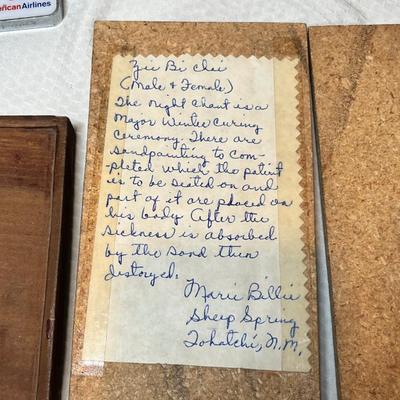 American Airlines
Yii Bi Chi
(Male & Female)
The night chant is a
Major Winter Curing
Ceremony. There are
Sandpainting to com-
pleted which the patient
is to be seated on and
part of it are placed on
his body. After the
sickness is absorbed
by the sand then
distoryed.
Marie Billie
Sheep Spring
Tohatchi, N.M.